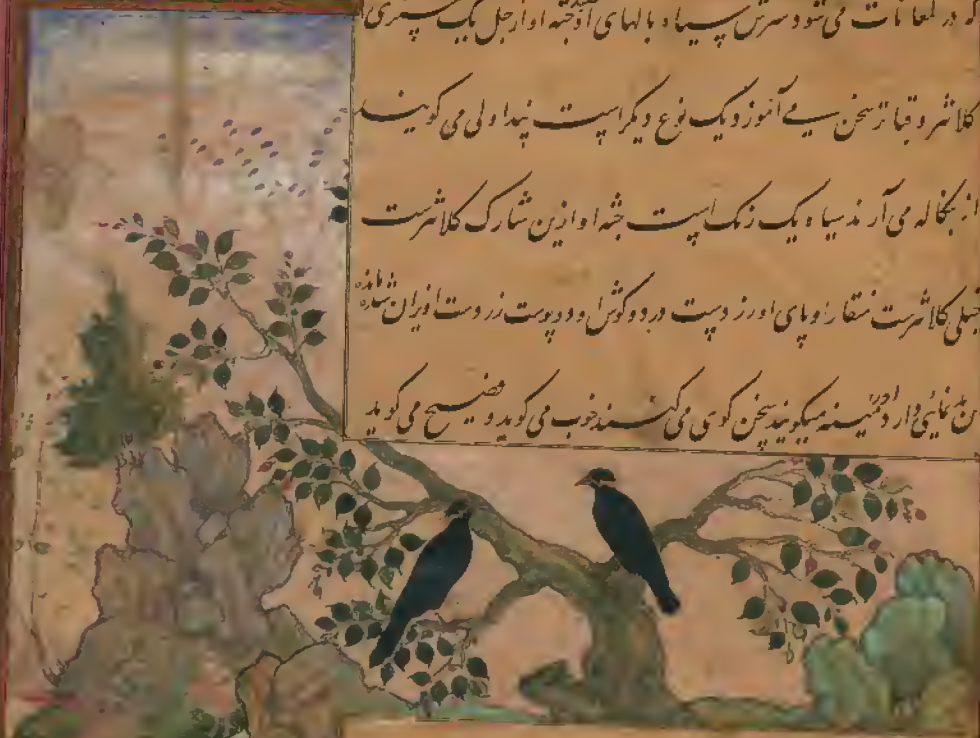 در لمغانات می شود سرش سیاه و بالهای او جثه او از جل یک چیزی
کلانتر و قبا تر سخن می آموزد یک نوع دیگر است پنداولی می گویند
از بنگاله می آرند سیاه یک رنگ است جثه او ازین شارک کلانتر است
خیلی کلانتر است منقار و پای او زرد است در دو گوش او دو پوست زرد است اویزان شده مانده
بدنمائی دارد اورا مینه میگویند سخن گوی می کنند خوب می گوید و فصیح می گوید